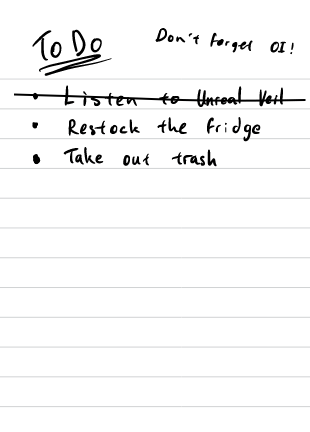 To Do
Don't forget OI!
• Listen to Unreal Veil
• Restock the fridge
• Take out trash